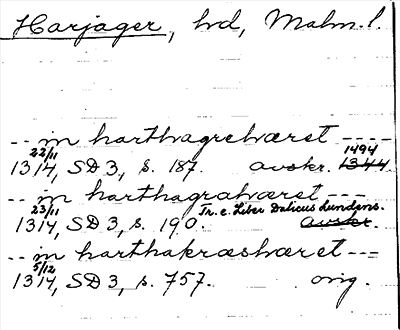 Harjager, hd, Malm. l.
--- in harthagrehæret ----
22/11 1494
1314, SD 3, s. 187. avskr. 1344
--- in harthagrahæret ---
23/11 Tr. e. Liber Daticus Lundens.
1314, SD 3, s. 190. avskr.
--- in harthakræshæret ---
5/12
1314, SD 3, s. 757. orig.